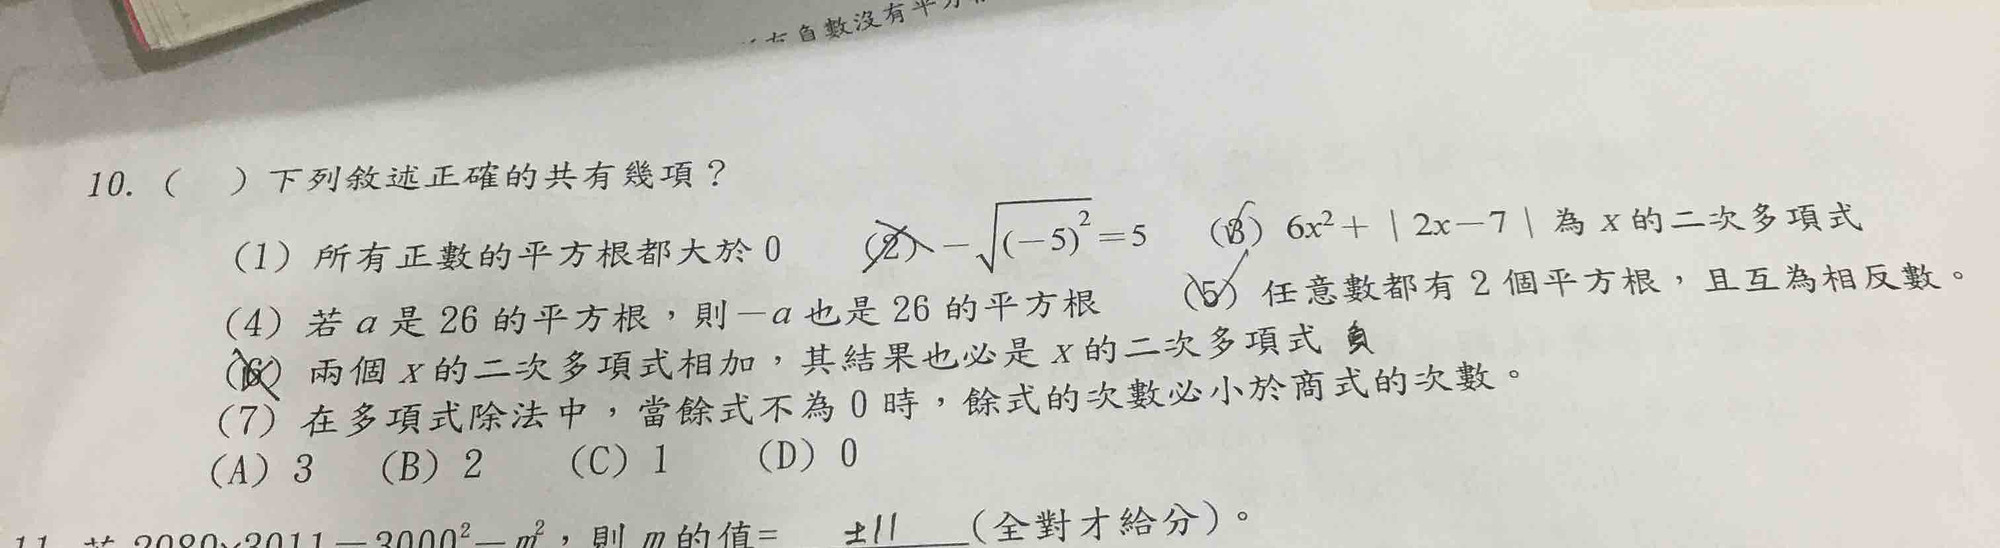 有負數沒有平方
10. (　) 下列敘述正確的共有幾項？
(1) 所有正數的平方根都大於 0　(2) −√(−5)² = 5　(3) 6x²+｜2x−7｜為 x 的二次多項式
(4) 若 a 是 26 的平方根，則−a 也是 26 的平方根　(5) 任意數都有 2 個平方根，且互為相反數。
(6) 兩個 x 的二次多項式相加，其結果也必是 x 的二次多項式 負
(7) 在多項式除法中，當餘式不為 0 時，餘式的次數必小於商式的次數。
(A) 3　(B) 2　(C) 1　(D) 0
11. 若 2989×3011=3000²−m²，則 m 的值= ±11 (全對才給分)。